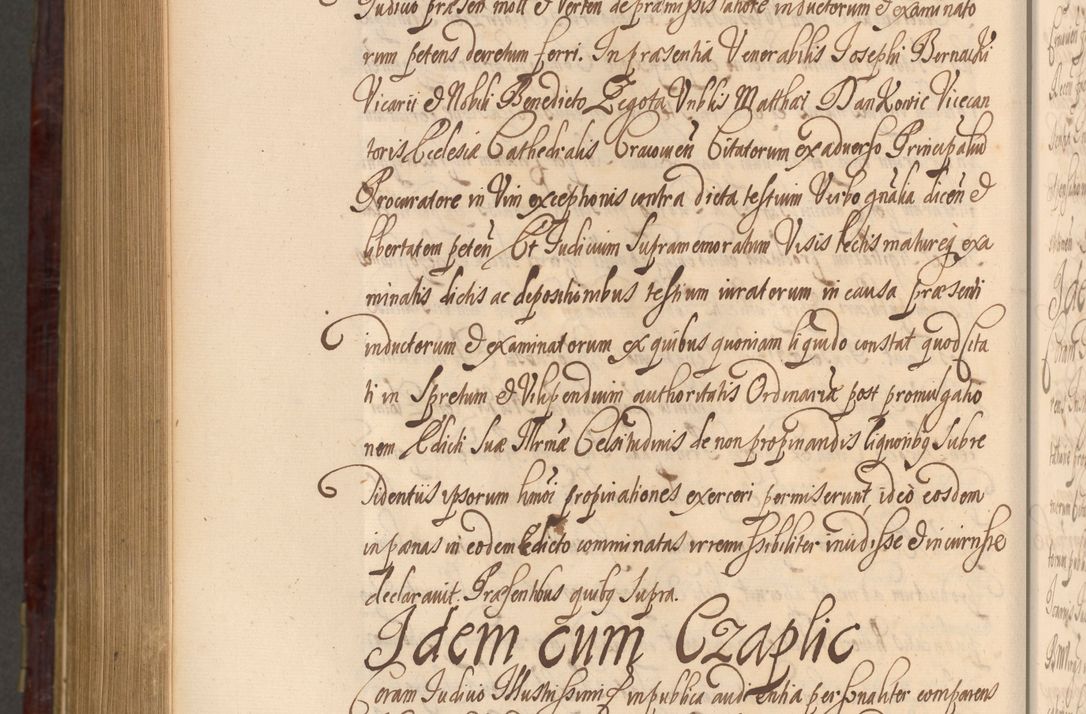 Judicio præsen moti et verten de præmissis latiore inductorum et examinato
rum petens decretum ferri. In præsentia Venerabilis Josephi Bernacki
Vicarii et Nobili Benedicto Zegota Vnbłis Matthæi Dankowic Vicecan
toris Ecclesiæ Cathedralis Cracovien̄ Citatorum ex adverso Principalium
Procuratore in Vim exceptionis contra dicta testium Verbo gn̄alia dicen̄ et
libertatem peten̄ Et Judicium supramemoratum Visis lectis matureq exa
minatis dictis ac depositionibus testium iuratorum in causa præsenti
inductorum et examinatorum ex quibus quoniam liquido constat quod Cita
ti in spretum et Vilipendium authoritatis Ordinariæ post promulgatio
nem Edicti suæ Illrmæ Celsitudinis de non propinandis liquoribq subre
sidentiis ipsorum hmōi propinationes exerceri permiserunt, ideo eosdem
in pænas in eodem Edicto comminatas irremissibiliter incidisse et incurrisse
declaravit. Præsentibus quibq supra.
Idem cum Czaplic
Coram Judicio Illustrissimi in publica audientia personaliter comparens